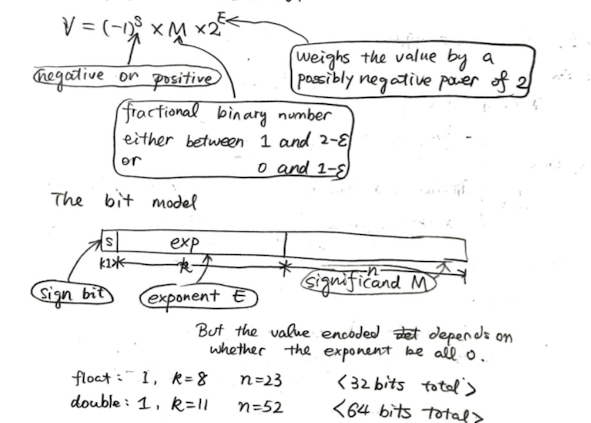 V = (-1)^S × M × 2^E
negative or positive
weighs the value by a
possibly negative power of 2
fractional binary number
either between 1 and 2-ε
or 0 and 1-ε
The bit model
s exp
1 k n
sign bit
exponent E
significand M
But the value encoded depends on
whether the exponent be all 0.
float: 1, k=8 n=23 <32 bits total>
double: 1, k=11 n=52 <64 bits total>